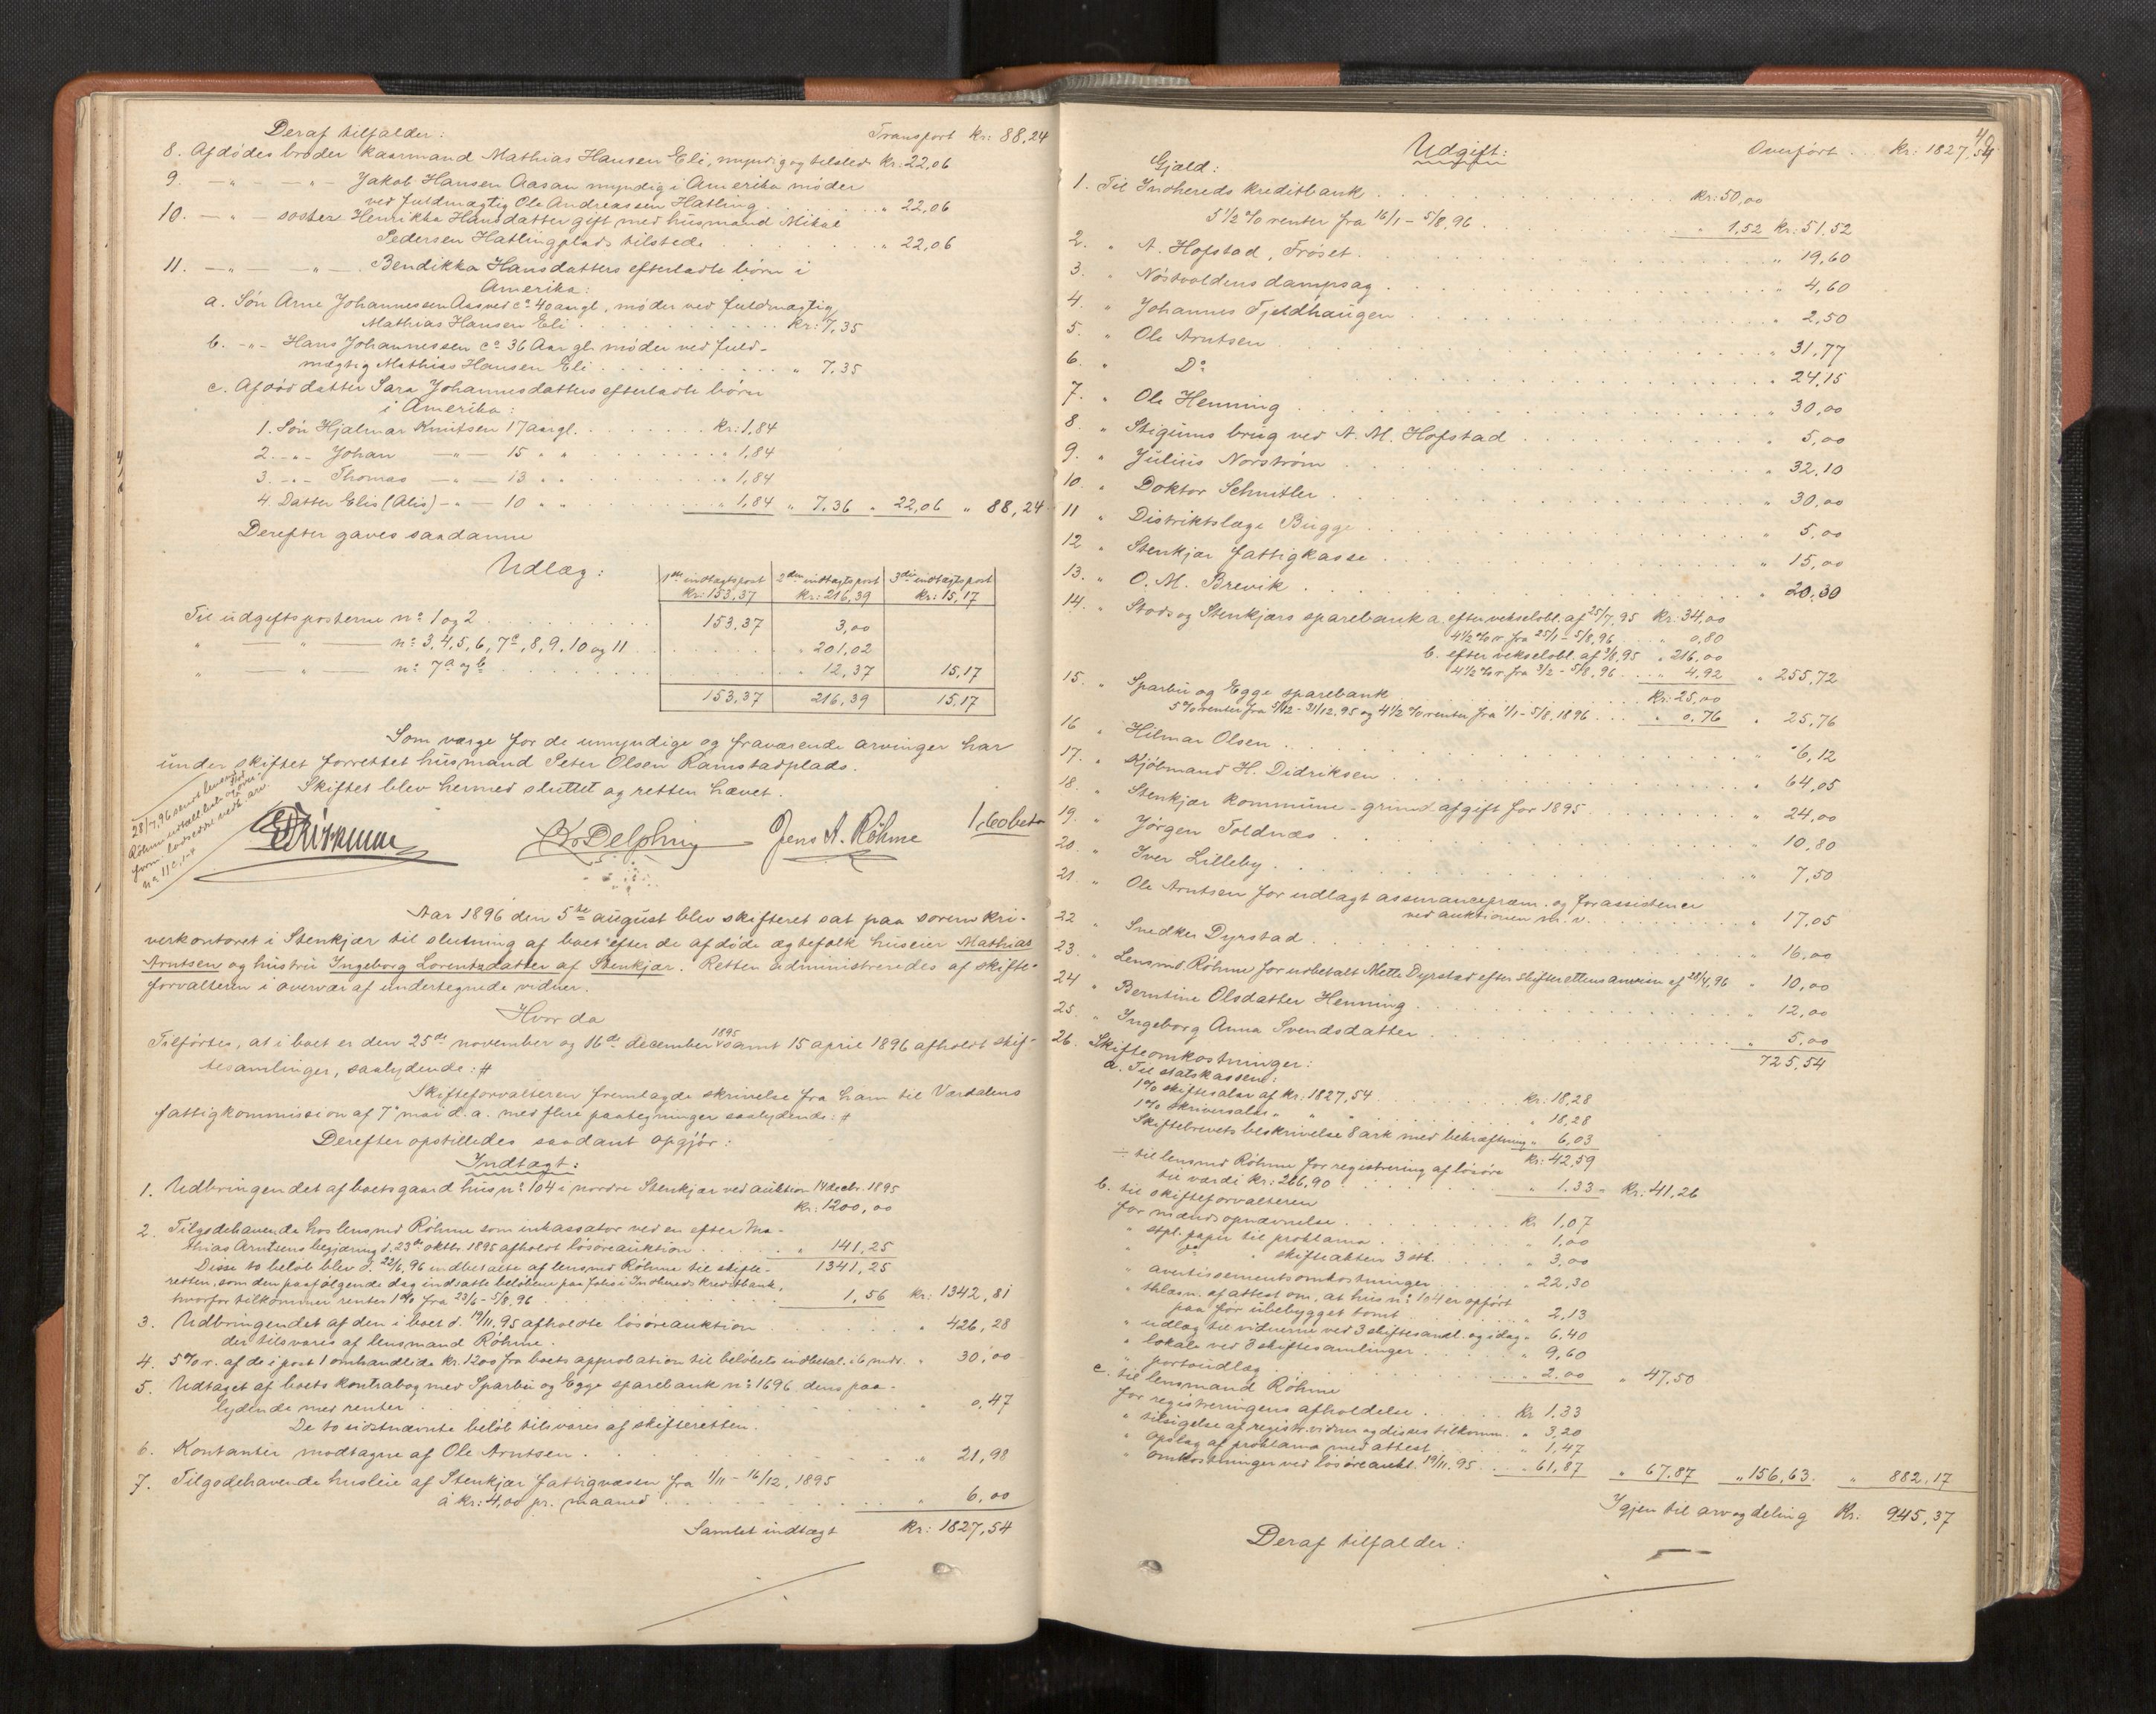 Deraf tilfalder: Transport kr: 88,24
8. Afdödes broder kaarmand Mathias Hansen Eli, myndig og tilstede kr: 22,06
9. — " — — " — Jakob Hansen Aasan myndig i Amerika möder
ved fuldmægtig Ole Andreassen Hatling . . . " 22,06
10. — " — söster Henrikka Hansdatter gift med husmand Mikal
Pedersen Hatlingplads tilstede . . . " 22,06
11. — " — — " — Bendikka Hansdatters efterladte börn i
Amerika:
a. Sön Arne Johannessen Aasved ca 40 aar gl., möder ved fuldmægtig
Mathias Hansen Eli . . . kr: 7,35
b. – " – Hans Johannessen ca 36 Aar gl. möder ved fuld-
mægtig Mathias Hansen Eli . . . " 7,35
c. Afdöd datter Sara Johannesdatters efterladte börn
i Amerika:
1. Sön Hjalmar Knutsen 17 aar gl. . . . kr: 1,84
2. – " – Johan — " — 15 " " . . . " 1,84
3. – " – Thomas — " — 13 " " . . . " 1,84
4. Datter Elis (Alis) – " — 10 " " . . . " 1,84 " 7,36 " 22,06 " 88,24
Derefter gaves saadanne
Udlæg:
1ste indtægtspost 2den indtægtspost 3die indtægtspost
kr: 153,37 kr: 216,39 kr: 15,17
Til udgiftsposterne no 1 og 2 . . . 153,37 3,00
" — " — no 3, 4, 5, 6, 7c, 8, 9, 10 og 11 . . . " 201,02
" — " — no 7a og b . . . " 12,37 15,17
153,37 216,39 15,17
Som værge for de umyndige og fraværende arvinger har
under skiftet forrettet husmand Peter Olsen Ramstadplads.
Skiftet blev hermed sluttet og retten hævet.
28/7,96 sendt lensmd
Röhme
no 11 c, 1-4
K. Delphin Jens A. Röhme 1,60 bet
Aar 1896 den 5te august blev skifteret sat paa sorenskri-
verkontoret i Stenkjær til slutning af boet efter de afdöde ægtefolk huseier Mathias
Arntsen og hustru Ingeborg Lorentsdatter af Stenkjær. Retten administreredes af skifte-
forvalteren i overvær af undertegnede vidner.
Hvorda
Tilförtes, at i boet er den 25de november og 16de december 1895 samt 15 april 1896 afholdt skif-
tesamlinger, saalydende: #
Skifteforvalteren fremlagde skrivelse fra ham til Værdalens
fattigkommission af 7de mai d. a. med flere paategninger saalydende: #
Derefter opstilledes saadant opgjör:
Indtægt:
1. Udbringendet af boets gaard hus no 104 i nordre Stenkjær ved auktion 14 decbr. 1895
kr: 1200,00
2. Tilgodehavende hos lensmd Röhme som inkassator ved en efter Ma-
thias Arntsens begjæring d. 23de oktbr. 1895 afholdt lösöreauktion . . . " 141,25
Disse to belöb blev d. 22/6, 96 indbetalte af lensmd Röhme til skifte- 1341,25
retten, som den paafölgende dag indsatte belöbene paa folio i Indherreds kreditbank,
hvorfor tilkommer renter 1% fra 23/6 – 5/8, 96 . . . 1,56 kr: 1342,81
3. Udbringendet af den i boet d. 19/11, 95 afholdte lösöreauktion . . . " 426,28
der tilsvares af lensmand Röhme.
4. 5% r. af de i post 1 omhandlede kr. 1200 fra boets approbation til belöbets indbetal. i 6 mdr. " 30,00
5. Udtaget af boets kontrabog med Sparbu og Egge sparebank no 1696 dens paa-
lydende med renter . . . " 0,47
De to sidstnævnte belöb tilsvares af skifteretten.
6. Kontanter modtagne af Ole Arntsen . . . " 21,98
7. Tilgodehavende husleie af Stenkjær fattigvæsen fra 1/11 – 16/12, 1895
à kr: 4,00 pr. maaned . . . " 6,00
Samlet indtægt kr: 1827,54
Udgift: Overfört . kr: 1827,54
Gjæld:
1. Til Indherreds kreditbank . . . kr: 50,00
5 1/2 % renter fra 16/1 – 5/8, 96 . . . " 1,52 kr: 51,52
2. " A. Hofstad, Fröset . . . " 19,60
3. " Nöstvoldens dampsag . . . " 4,60
4. " Johannes Fjeldhaugen . . . " 2,50
5. " Ole Arntsen . . . " 31,77
6. " Do . . . " 24,15
7. " Ole Henning . . . " 30,00
8. " Stigums brug ved A. M. Hofstad . . . " 5,00
9. " Julius Norström . . . " 32,10
10. " Doktor Schnitler . . . " 30,00
11 " Distriktslæge Bugge . . . " 5,00
12 " Stenkjær fattigkasse . . . " 15,00
13. " O. M. Brevik . . . " 20,30
14. " Stods og Stenkjærs sparebank a. efter vekselobl. af 25/7, 95 kr: 34,00
4 1/2 % r. fra 25/1 – 5/8, 96 . . " 0,80
b. efter vekselobl. af 3/8, 95 " 216,00
4 1/2 % r. fra 3/2 – 5/8, 96 . . . " 4,92 " 255,72
15. " Sparbu og Egge sparebank . . . kr: 25,00
5% renter fra 5/12 – 31/12, 95 og 4 1/2 % renter fra 1/1 – 5/8, 1896 . . . " 0,76 " 25,76
16 " Hilmar Olsen . . . " 6,12
17. " Kjöbmand H. Didriksen . . . " 64,05
18. " Stenkjær kommune – grundafgift for 1895 . . . " 24,00
19. " Jörgen Foldnæs . . . " 10,80
20. " Iver Lilleby . . . " 7,50
21. " Ole Arntsen for udlagt assurancepræm. og for assistence
ved auktionen m. v. . . . " 17,05
22 " Snedker Dyrstad . . . " 16,00
23. " Lensmd Röhme for udbetalt Mette Dyrstad efter skifterettens anvisn. af 28/4, 96 " 10,00
24 " Berntine Olsdatter Henning . . . " 12,00
25. " Ingeborg Anna Svendsdatter . . . " 5,00
725,54
26. Skifteomkostninger:
a. Til statskassen:
1% skiftesalær af kr: 1827,54 . . . kr: 18,28
1% skriversalær " " " . . . " 18,28
Skiftebrevets beskrivelse 8 ark med bekræftning " 6,03
kr: 42,59
÷ til lensmd Röhme for registrering af lösöre
til værdi kr: 266,90 . . . " 1,33 – kr: 41,26
b. til skifteforvalteren
for mændsopnævnelse . . . kr 1,07
" stpl. papir til proklama . . . " 1,00
" do " skifteakten 3 stk. . . . " 3,00
" avertissementsomkostninger . . . " 22,30
" thlæsn. af attest om, at hus no 104 er opfört
paa för ubebygget tomt . . . " 2,13
" udlæg til vidnerne ved 3 skiftesaml. og idag " 6,40
" lokale ved 3 skiftesamlinger . . . " 9,60
" portoudlæg . . . " 2,00 " 47,50
c. til lensmand Röhme
for registreringens afholdelse . . . kr 1,33
" tilsigelse af registr.vidner og disses tilkomm. " 3,20
" opslag af proklama med attest . . . " 1,47
" omkostninger ved lösöreaukt. 19/11, 95 . . . " 61,87 " 67,87 " 156,63. " 882,17
Igjen til arv og deling kr: 945,37
Deraf tilfalder: